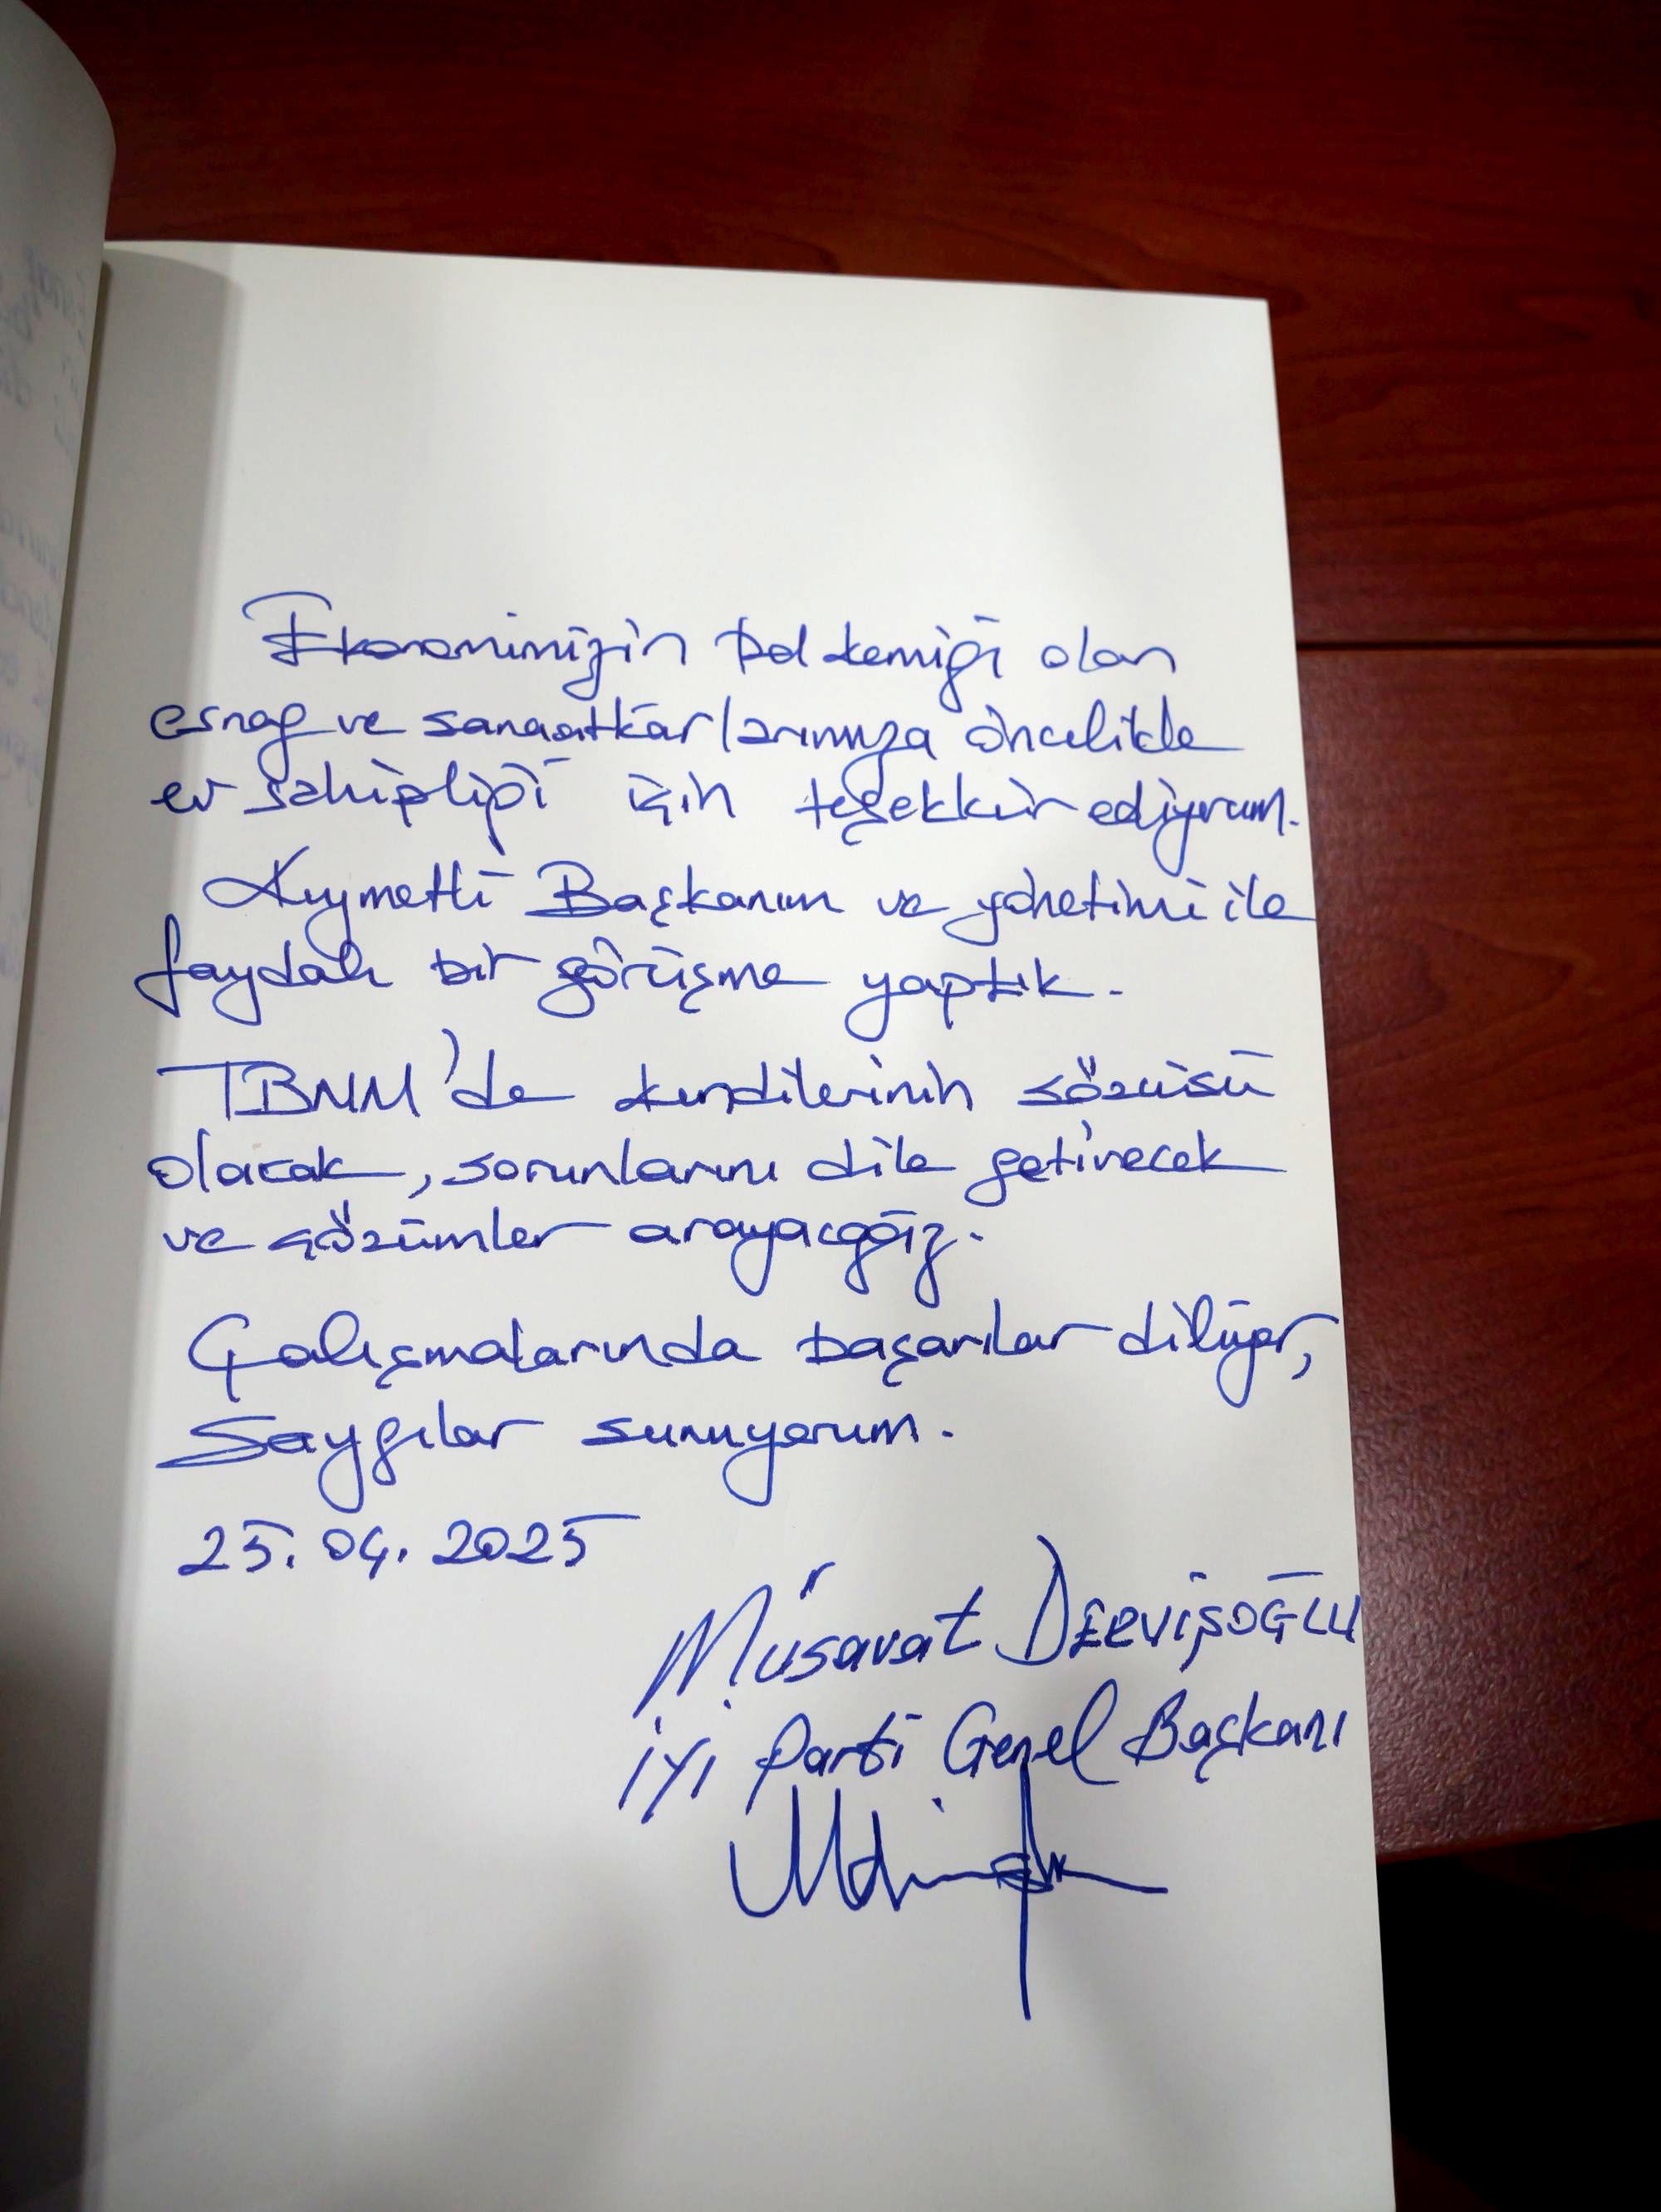 Ekonomimizin bel kemiği olan
esnaf ve sanaatkârlarımıza öncelikle
ev sahipliği için teşekkür ediyorum.
Kıymetli Başkanım ve yönetimi ile
faydalı bir görüşme yaptık.
TBMM'de kendilerinin sözcüsü
olacak, sorunlarını dile getirecek
ve çözümler arayacağız.
Çalışmalarında başarılar diliyor,
Saygılar sunuyorum.
25.04.2025
Müsavat DERVİŞOĞLU
İYİ Parti Genel Başkanı